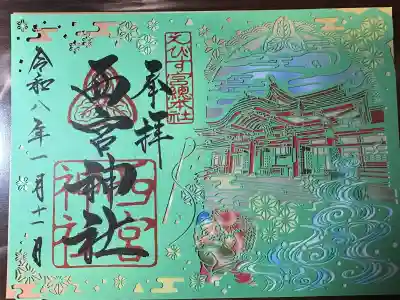 えびす宮総本社
奉拝
西宮神社
西宮神社
令和八年一月十一日